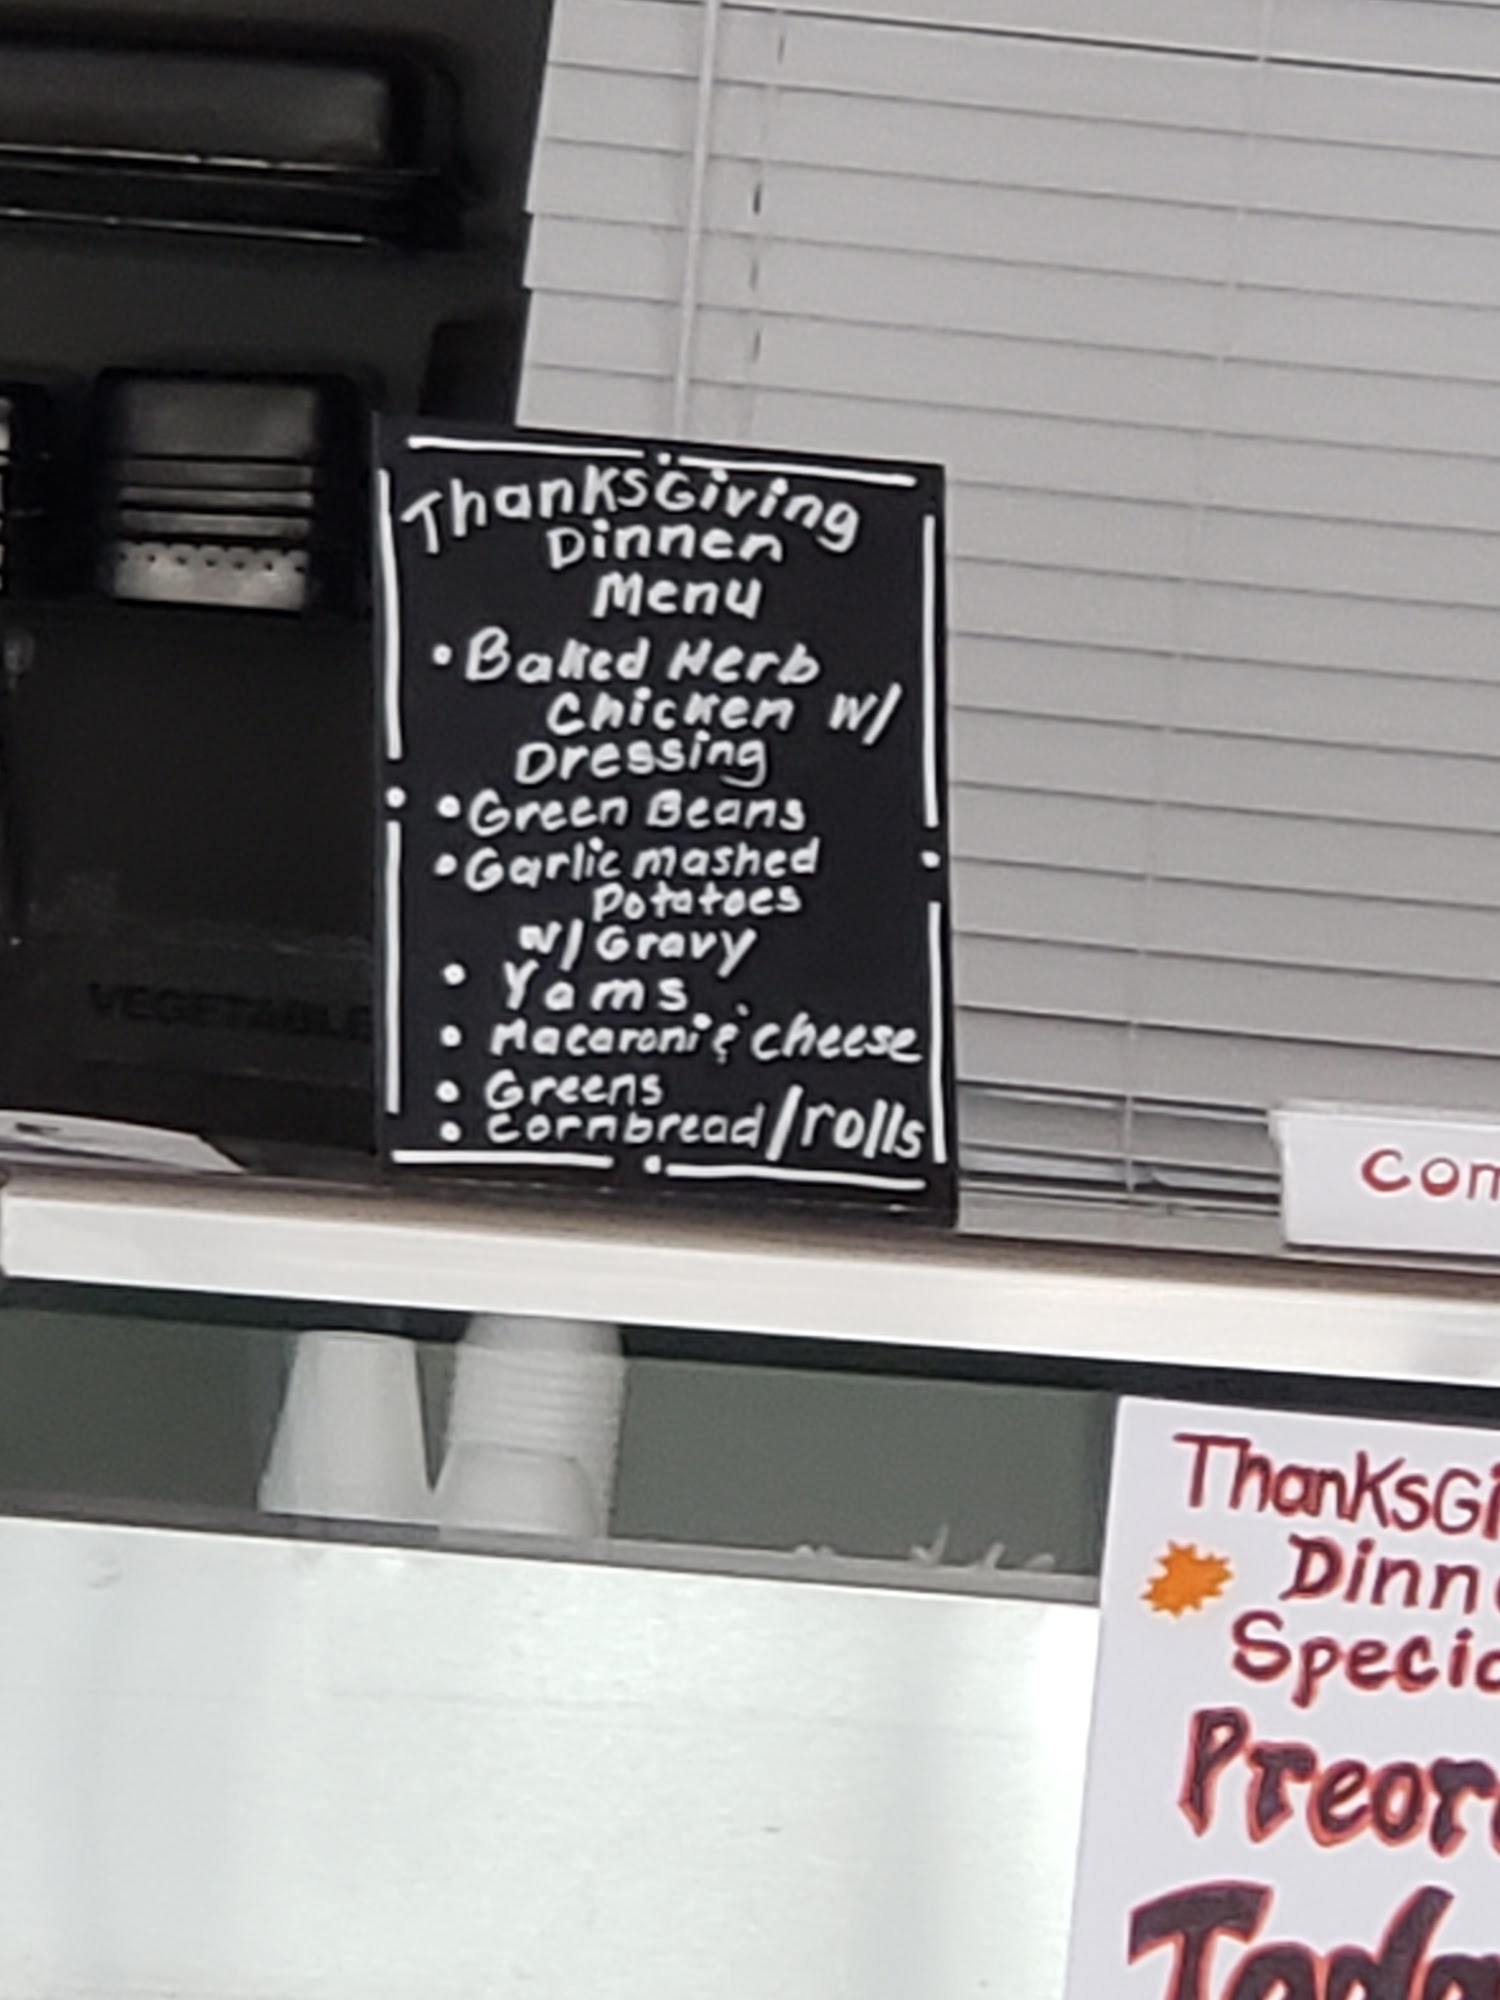 ThanksGiving
Dinner
Menu
• Baked Herb
Chicken w/
Dressing
• Green Beans
• Garlic mashed
Potatoes
w/ Gravy
• Yams
• Macaroni & cheese
• Greens
• Cornbread/rolls
VEGETABLE
Com
ThanksGi
Dinn
Specia
Preor
Toda